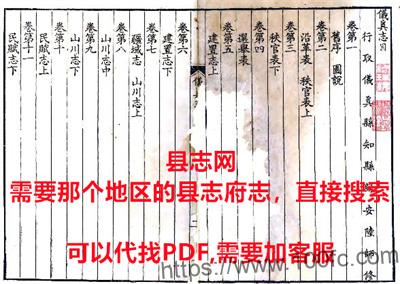 儀真志目
行取儀真縣知縣安陸師修
卷第一
舊序 圖說
卷第二
沿革表 秩官表上
卷第三
秩官表下
卷第四
選舉表
卷第五
建置志上
卷第六
建置志下
卷第七
疆域志 山川志上
卷第八
山川志中
卷第九
山川志下
卷第十
民賦志上
卷第十一
民賦志下
县志网
需要那个地区的县志府志，直接搜索
可以代找PDF,需要加客服